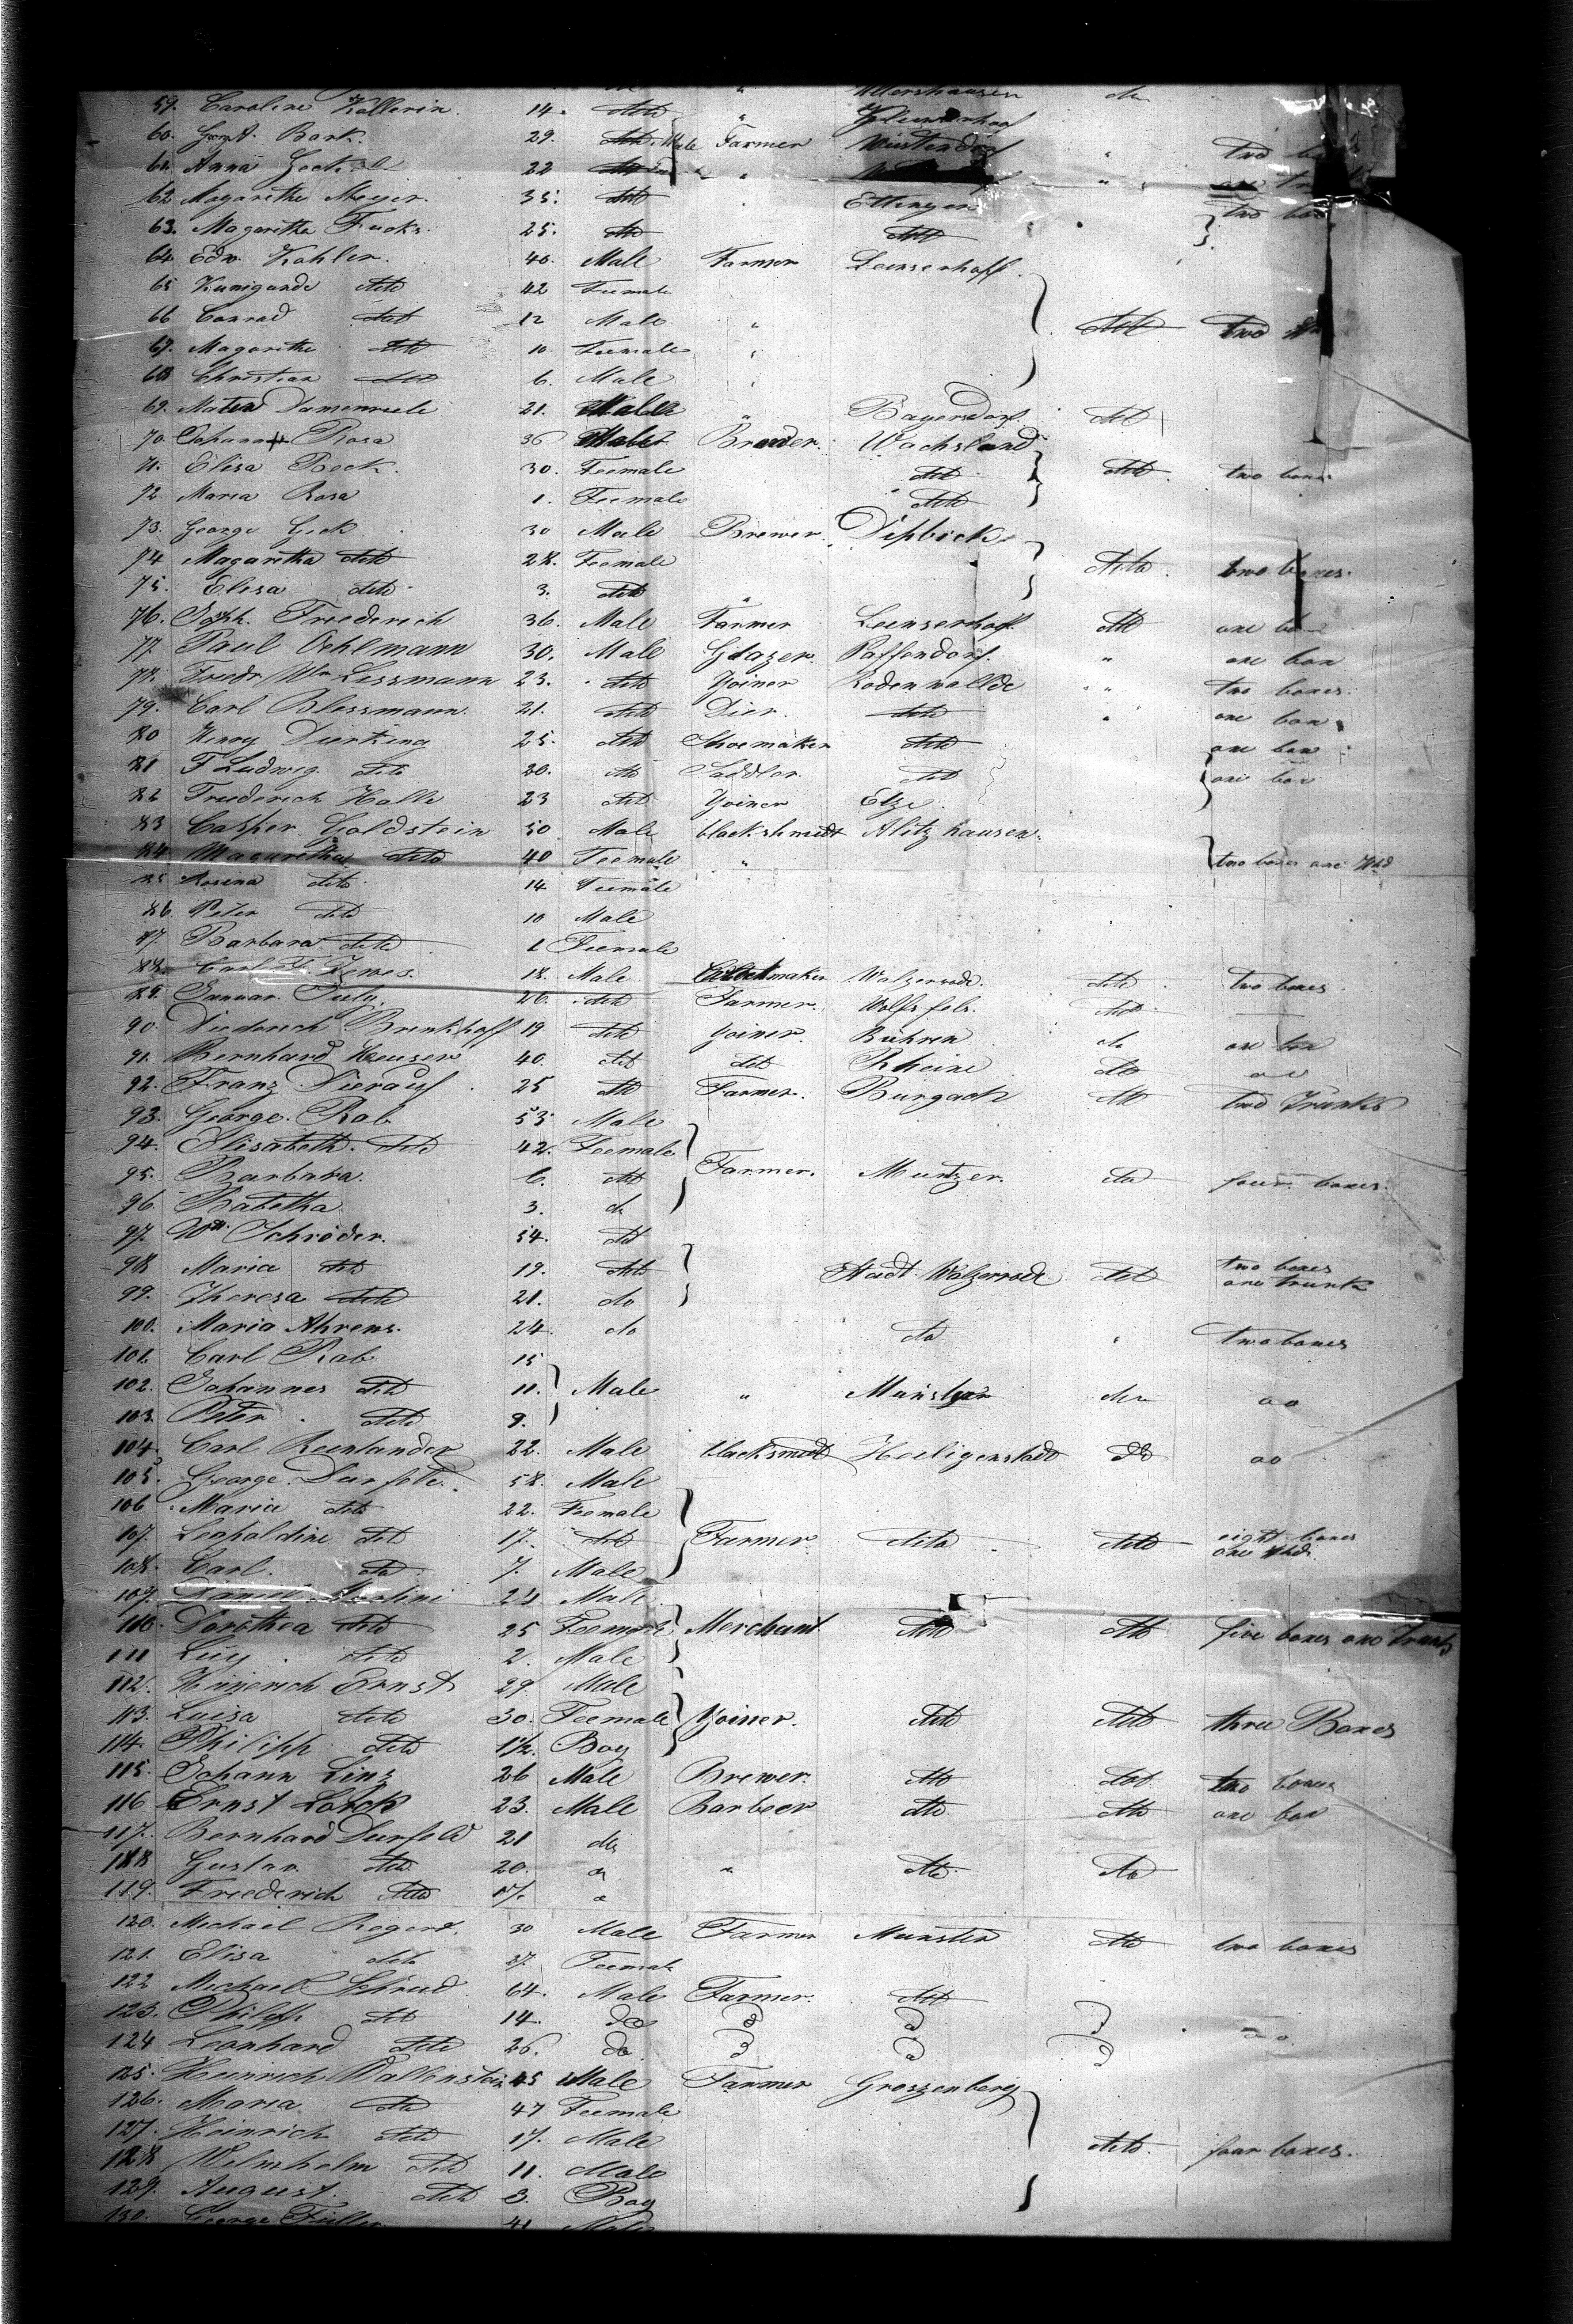 59. Caroline Kollerin. 14. ditto "
60. Bark. 29. Male Farmer Wüstendorf " two
61. Anna 22 " "
62 Magaretha Meyer. 35. ditto Ettingen two box
63. Magaretha Fucks. 25. ditto ditto
64. Edw. Kohler. 40. Male Farmer Leinserhoff.
65 Kunigunde ditto 42 Feemale
66 Conrad ditto 12 Male " ditto two
67. Magaretha ditto 10 Feemale "
68 Christian ditto 6. Male "
69. 21. Male " Bayersdorf ditto
70. Rosa 36 Male Wachsland
71. Elisa Beck. 30. Feemale ditto ditto. two boxes
72 Maria Rosa 1. Feemale ditto
73. George Geck 30 Male Brewer.
74 Magaretha ditto 28. Feemale ditto. two boxes.
75. Elisa ditto 3. ditto "
76. Friederich 36. Male Farmer Leinserhoff. ditto one
77. Paul Oehlmann 30. Male Glazer. Paffendorf. " one box
78. Friedr. Wm Lessmann 23. ditto Yoiner Rodenwallde " two boxes.
79. Carl Blessmann. 21. ditto Dier. ditto " one box
80 Henry Dierking 25. ditto Shoemaker ditto one box
81 F Ludwig ditto 20. do Saddler. ditto one box
82 Friederich Halle 23 ditto Yoiner Elze.
83 Casper Goldstein 50 Male blackshmidt Alitzhausen.
84 Magaretha ditto 40 Feemale " two boxes one Hhd
85 Rosina ditto 14 Feemale
86. Peter ditto 10 Male
87. Barbara ditto 1 Feemale
88. Carl F. Zewes. 18. Male Walzerode. ditto. two boxes.
89. Januar July. 26. ditto Farmer. Wolfsfels. ditto.
90. Diedorich Brinkhoff 19 ditto Yoiner. Bühren do one box
91. Bernhard Heuser 40. ditto ditto Rheine ditto do
92. Franz Nierauf 25 ditto Farmer. Burgach ditto two Trunks
93. George. Rab. 53 Male
94. Elisabeth. ditto 42. Feemale
95. Barbara. 6. ditto Farmer. Muntzer. do four boxes.
96. Babetha 3. do
97. Wm. Schröder. 54. ditto
98 Maria ditto 19. ditto Stadt Walzerrode ditto two boxes
one trunk
99. Theresa ditto 21. do
100. Maria Ahrens. 24. do do " two boxes
101. Carl Rab 15
102. Johannes ditto 11. Male " Münster do do
103. Peter ditto 9.
104. Carl Reenlander 22. Male blacksmidt Heiligenstadt do do
105. George. Durfeld. 58. Male
106 Maria ditto 22. Feemale
107. Leopoldine ditto 17. ditto Farmer. ditto ditto eight boxes
one Hhd.
108. Carl. do 7. Male
109. Daniel 24 Male
110. Dorothea ditto 25 Feemale Merchant ditto ditto five boxes one trunk
111 ditto 2. Male
112. Heinerich Ernst 29. Male
113. Luisa ditto 30. Feemale Yoiner. ditto ditto three Boxes
114. Philipp ditto 1½. Boy
115. Johann Linz 26 Male Brewer. ditto ditto two boxes
116 Ernst Lorck 23. Male Barbeer ditto ditto one box
117. Bernhard Durfeld 21 do
118 Gustav. ditto 20. do " ditto do
119. Friederich ditto 17. do
120. Michael Rogert. 30 Male Farmer Munster ditto two boxes
121. Elisa ditto 27. Feemale
122 Michael 64. Male Farmer. ditto
123. Philipp ditto 14. do do do do
124 Leonhard ditto 26. do do do do
125. Heinrich Wallenstein 45 Male Farmer Groszenberg
126. Maria ditto 47 Feemale
127. Heinrich ditto 17. Male ditto. four boxes.
128 Wilmhelm ditto 11. Male
129. August. ditto 3. Boy
130. George Füller 41 Male